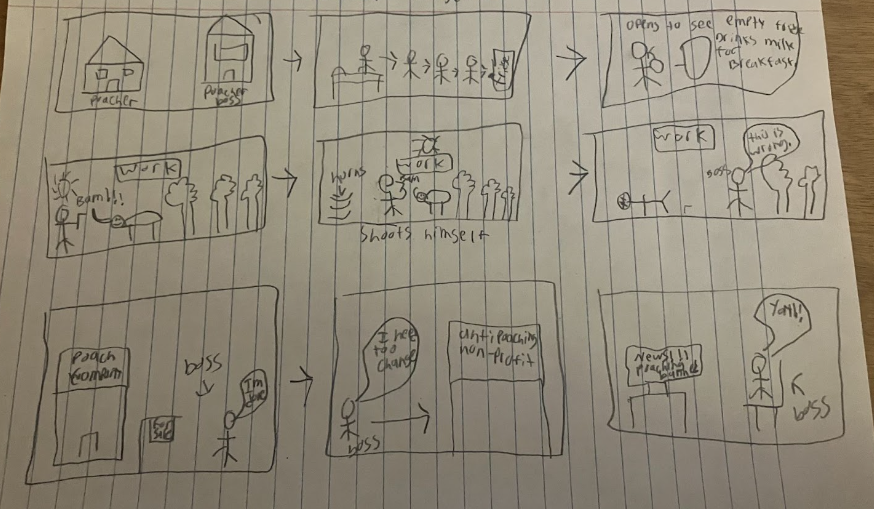 Poacher
Poacher
boss
opens to see empty fridge
Drinks milk
for
Breakfast
work
Bam!!!
horns
work
Bam
shoots himself
work
this is
wrong.
boss
Poach
Company
For
Sale
boss
I'm
done
I need
too
Change
boss
anti poaching
non-Profit
News!!!
poaching
banned
Yay!!
boss